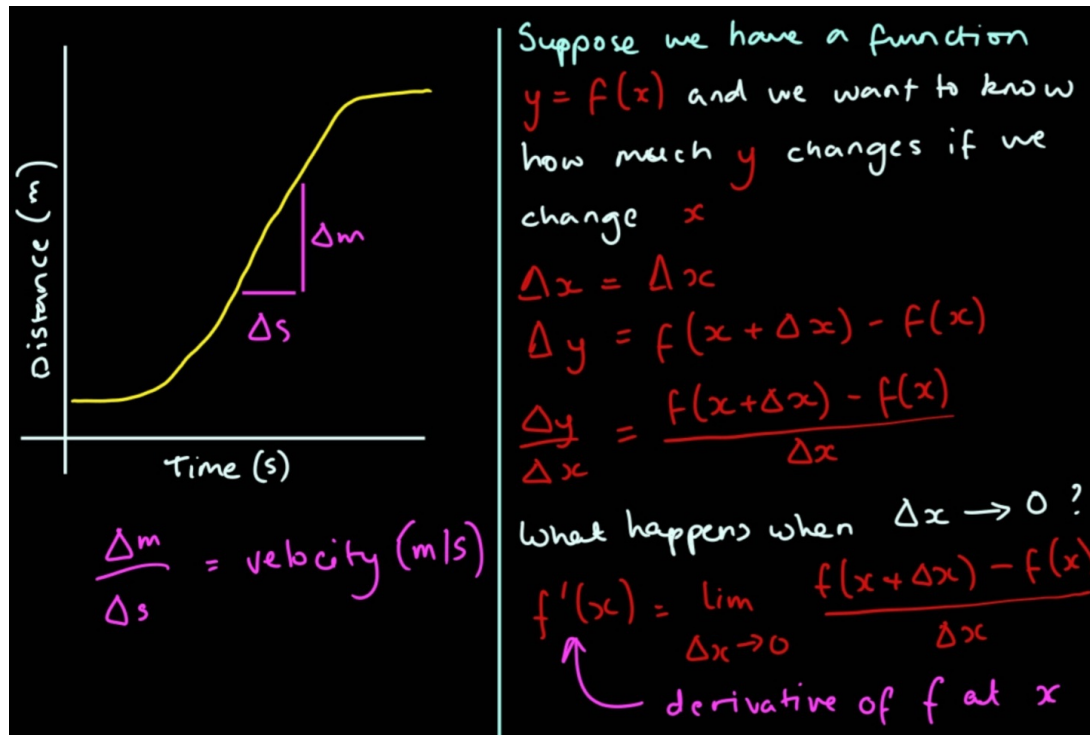 Distance (m)
Δm
Δs
Time (s)
Δm/Δs = velocity (m/s)
Suppose we have a function
y = f(x) and we want to know
how much y changes if we
change x
Δx = Δx
Δy = f(x + Δx) - f(x)
Δy/Δx = f(x+Δx) - f(x)/Δx
What happens when Δx → 0 ?
f'(x) = lim Δx→0 f(x+Δx) - f(x)/Δx
derivative of f at x